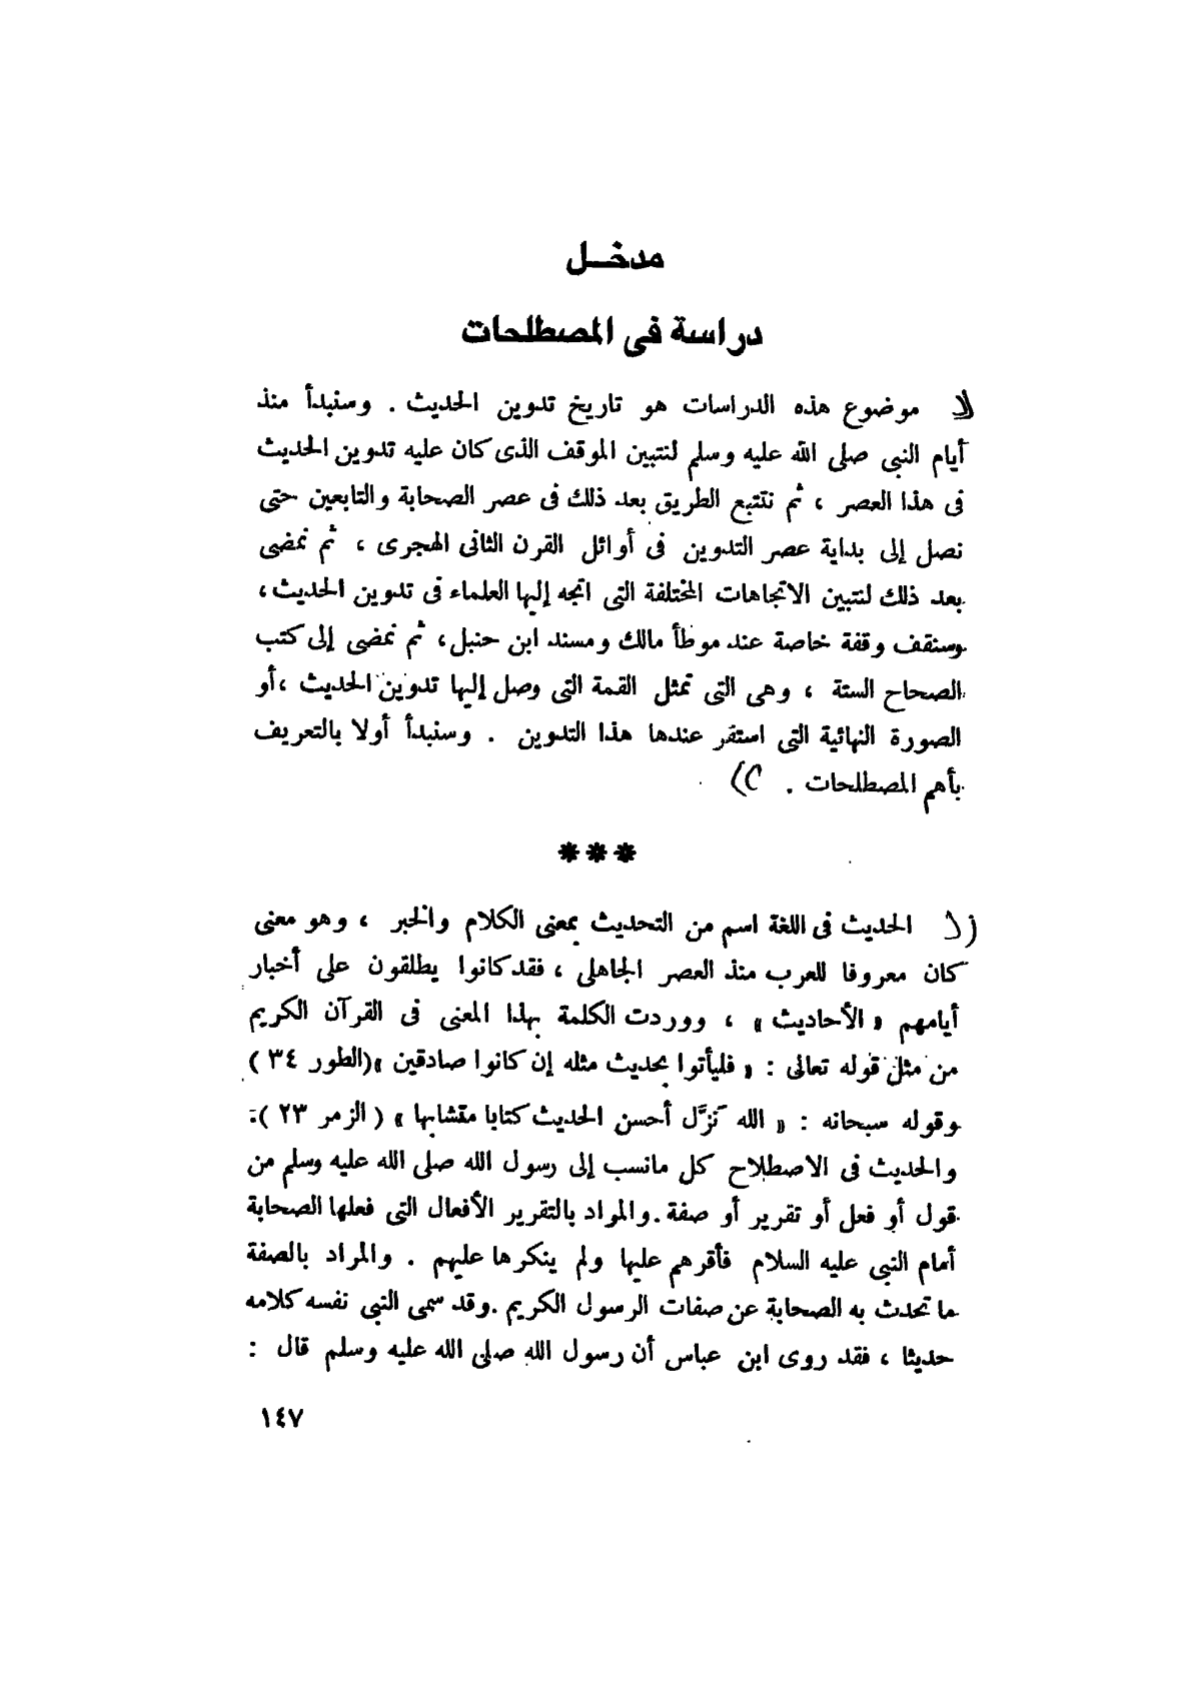 مدخل
دراسة فى المصطلحات
موضوع هذه الدراسات هو تاريخ تدوين الحديث . وسنبدأ منذ
أيام النبى صلى الله عليه وسلم لنتبين الموقف الذى كان عليه تدوين الحديث
فى هذا العصر ، ثم نتتبع الطريق بعد ذلك فى عصر الصحابة والتابعين حتى
نصل إلى بداية عصر التدوين فى أوائل القرن الثانى الهجرى ، ثم نمضى
بعد ذلك لنتبين الاتجاهات المختلفة التى اتجه إليها العلماء فى تدوين الحديث ،
وسنقف وقفة خاصة عند موطأ مالك ومسند ابن حنبل ، ثم نمضى إلى كتب
الصحاح الستة ، وهى التى تمثل القمة التى وصل إليها تدوين الحديث ، أو
الصورة النهائية التى استقر عندها هذا التدوين . وسنبدأ أولا بالتعريف
بأهم المصطلحات .
***
الحديث فى اللغة اسم من التحديث بمعنى الكلام والخبر ، وهو معنى
كان معروفا للعرب منذ العصر الجاهلى ، فقد كانوا يطلقون على أخبار
أيامهم « الأحاديث » ، ووردت الكلمة بهذا المعنى فى القرآن الكريم
من مثل قوله تعالى : « فليأتوا بحديث مثله إن كانوا صادقين » (الطور ٣٤ )
وقوله سبحانه : « الله نَزَّل أحسن الحديث كتابا متشابها » ( الزمر ٢٣ ) .
والحديث فى الاصطلاح كل مانسب إلى رسول الله صلى الله عليه وسلم من
قول أو فعل أو تقرير أو صفة . والمراد بالتقرير الأفعال التى فعلها الصحابة
أمام النبى عليه السلام فأقرهم عليها ولم ينكرها عليهم . والمراد بالصفة
ما تحدث به الصحابة عن صفات الرسول الكريم . وقد سمى النبى نفسه كلامه
حديثا ، فقد روى ابن عباس أن رسول الله صلى الله عليه وسلم قال :
١٤٧